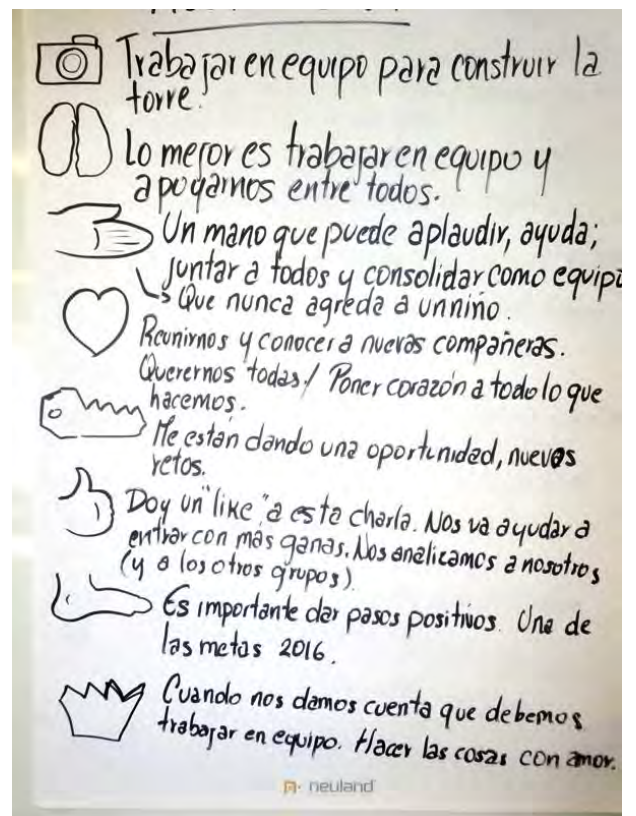 Trabajar en equipo para construir la
torre.
Lo mejor es trabajar en equipo y
apoyarnos entre todos.
Un mano que puede aplaudir, ayuda;
juntar a todos y consolidar como equipo
Que nunca agreda a un niño.
Reunirnos y conocer a nuevas compañeras.
Querernos todas / Poner corazón a todo lo que
hacemos.
Me están dando una oportunidad, nuevos
retos.
Doy un "like" a esta charla. Nos va ayudar a
entrar con más ganas. Nos analizamos a nosotros
(y a los otros grupos).
Es importante dar pasos positivos. Una de
las metas 2016.
Cuando nos damos cuenta que debemos
trabajar en equipo. Hacer las cosas con amor.
neuland